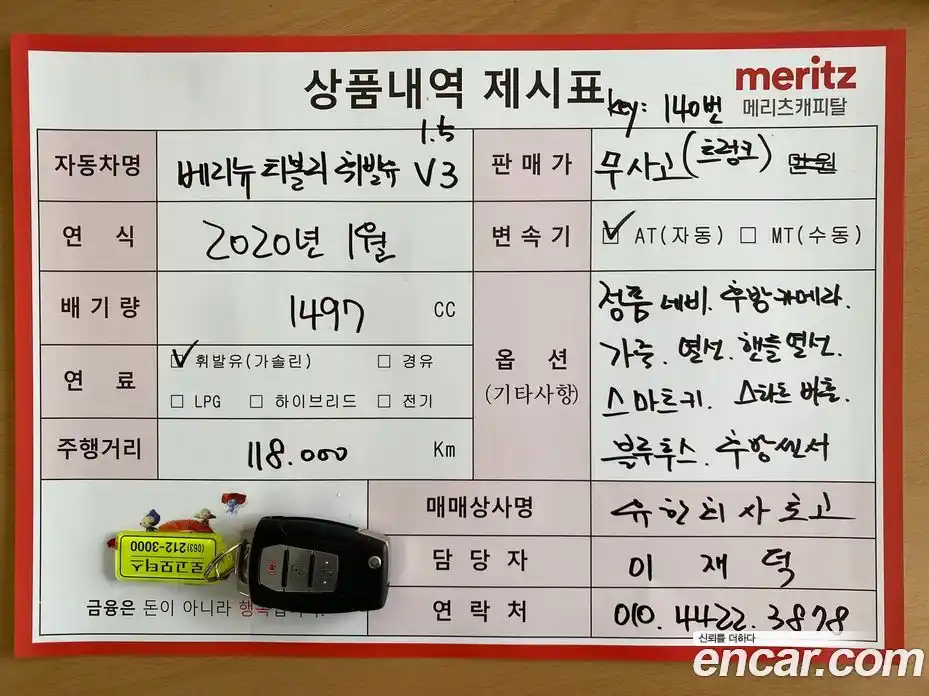 상품내역 제시표
meritz
메리츠캐피탈
key: 140번
자동차명
1.5
베리뉴 티볼리 휘발유 V3
판매가
무사고(트렁크) 만원
연 식
2020년 1월
변속기
AT(자동) MT(수동)
배기량
1497 CC
연 료
휘발유(가솔린) 경유
LPG 하이브리드 전기
옵 션
(기타사항)
정품 네비. 후방카메라.
가죽. 열선. 핸들열선.
스마트키. 스타트 버튼.
블루투스. 후방센서
주행거리
118.000 Km
매매상사명
유한회사 로고
담당자
이 재 덕
연락처
010. 4422. 3878
로고모터스
(063)212-3000
금융은 돈이 아니라
신뢰를 더하다
encar.com